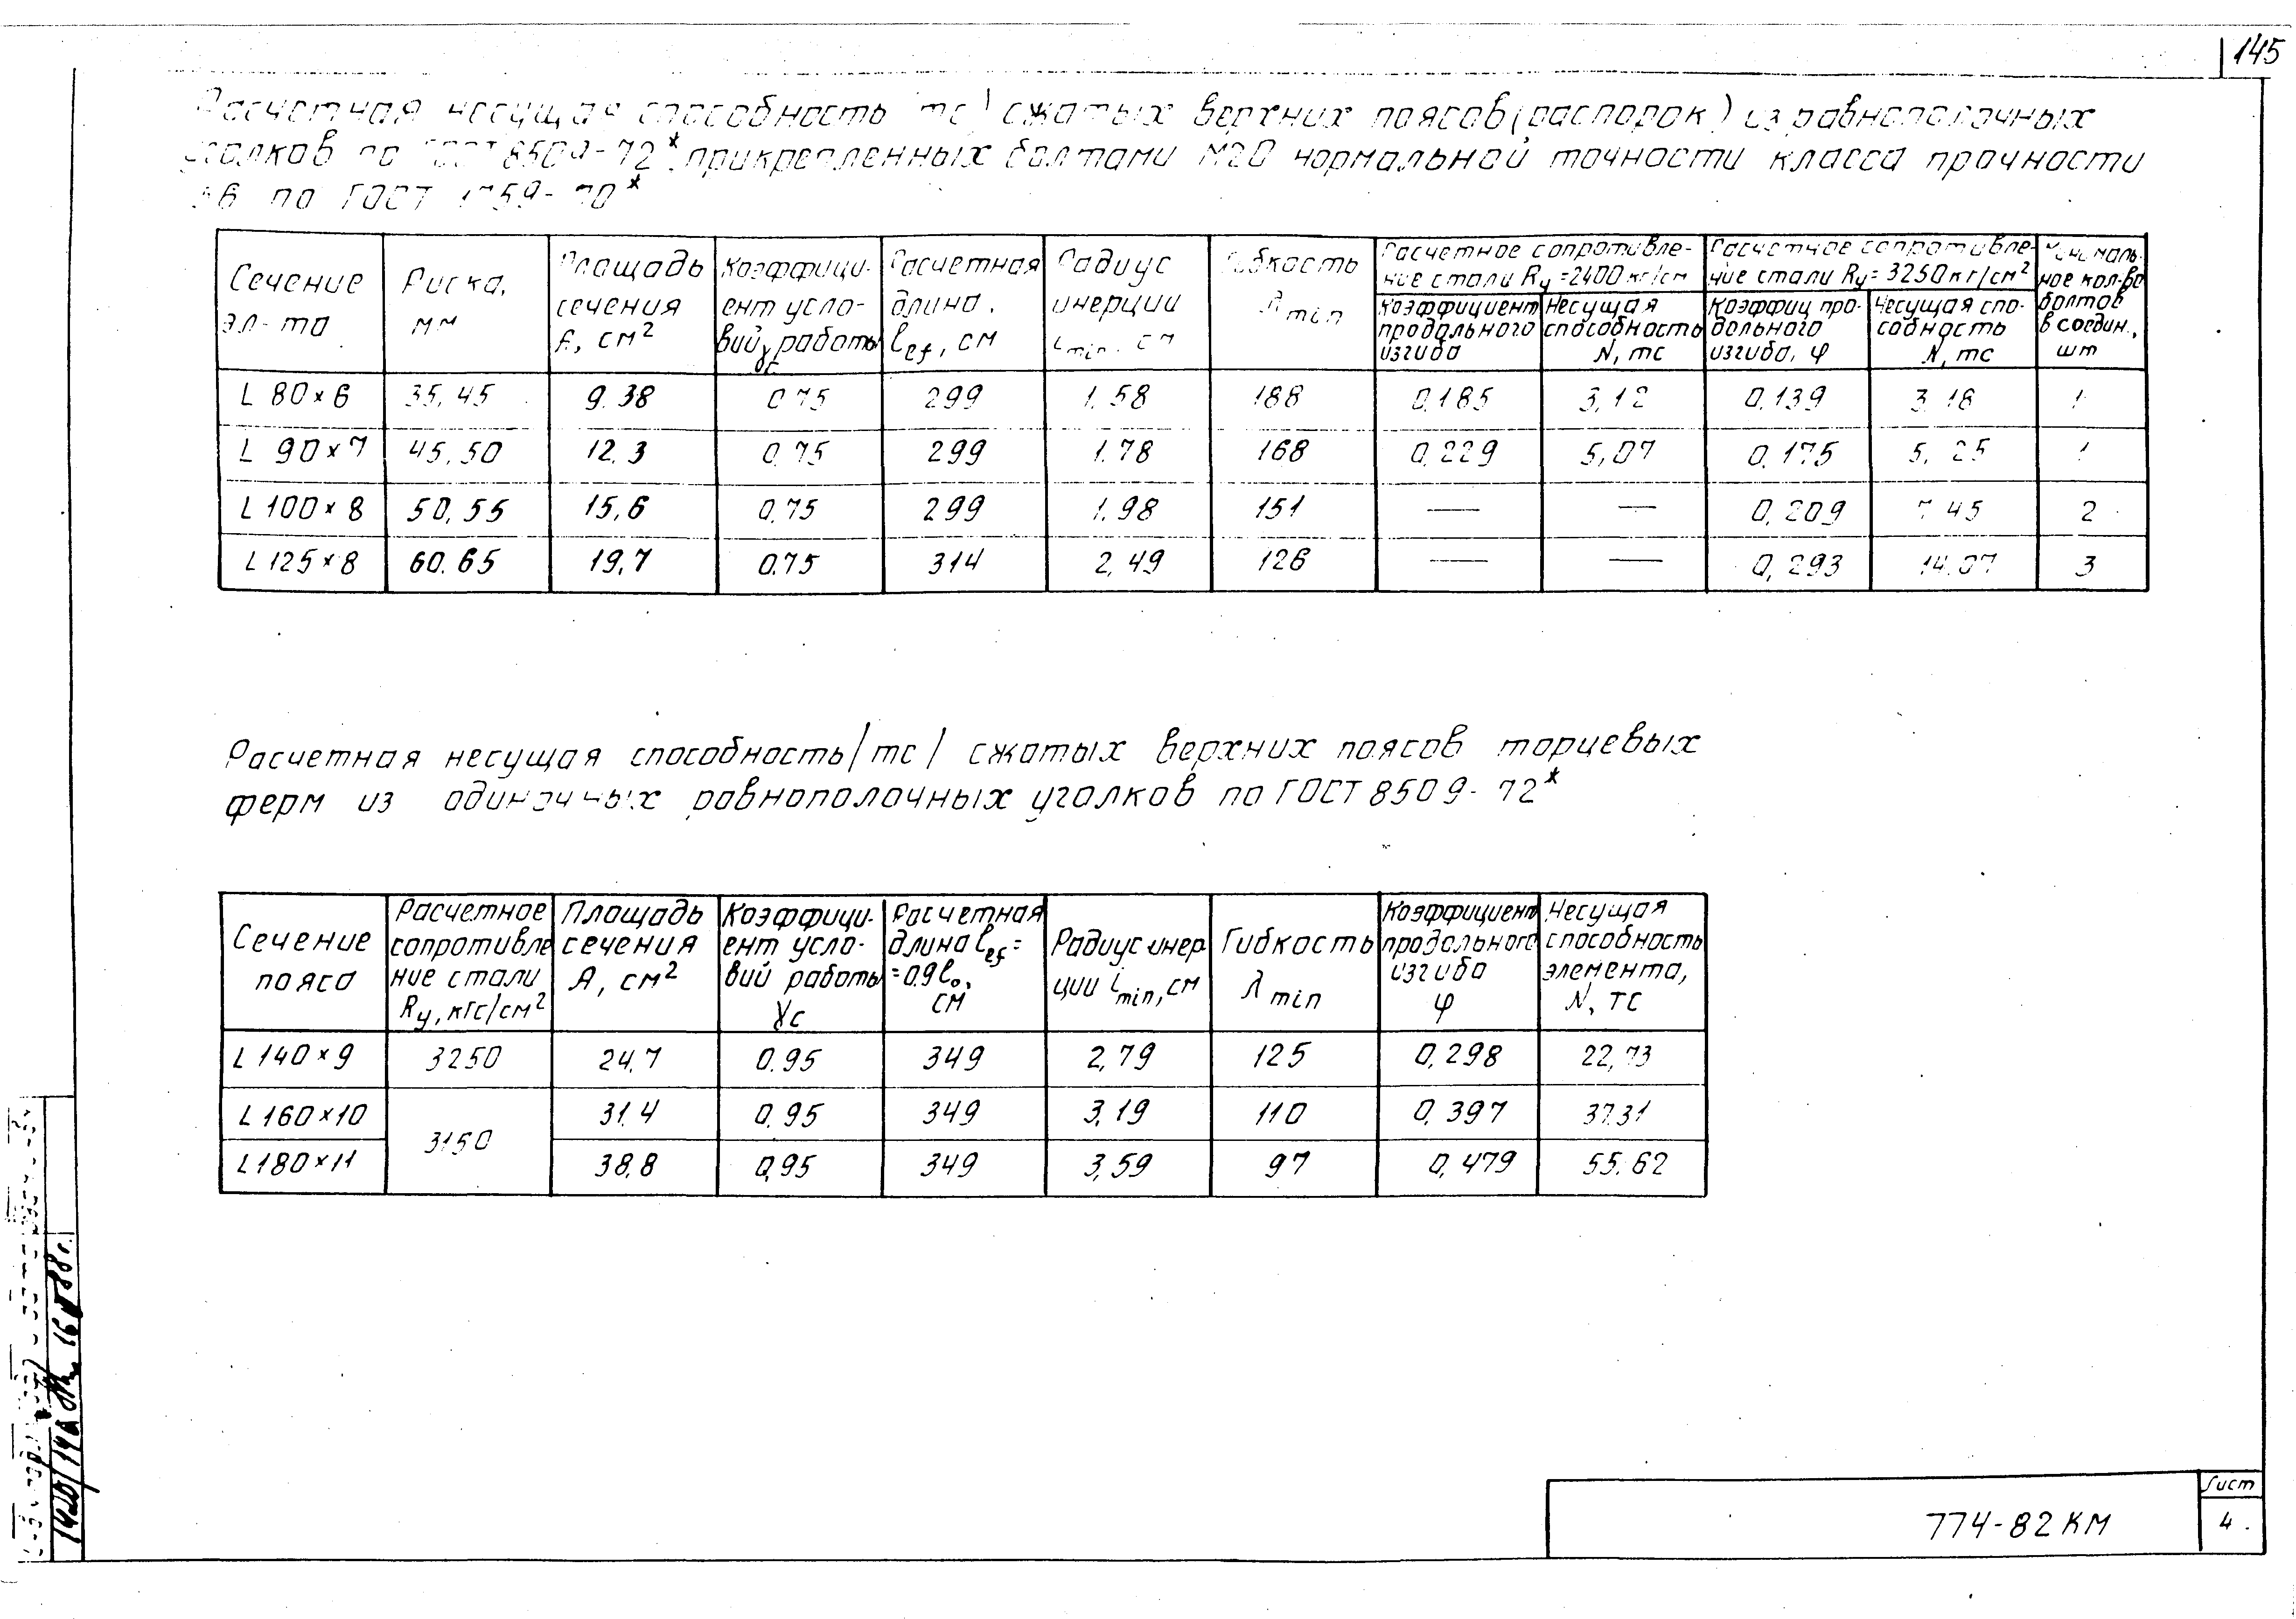 145
Расчетная несущая способность тс) сжатых верхних поясов (распорок) из равнополочных
уголков по ГОСТ 8509-72* прикрепленных болтами М20 нормальной точности класса прочности
по ГОСТ 1759-70*
Сечение эл-та | Риска, мм | Площадь сечения F, см² | Коэффици-ент усло-вий γс работы | Расчетная длина, lef, см | Радиус инерции imin, см | Гибкость λmin | Расчетное сопротивле-ние стали Rу=2400кг/см | Расчетное сопротивле-ние стали Rу=3250кг/см² | Минималь-ное кол-во болтов в соедин., шт
Коэффициент продольного изгиба | Несущая способность N, тс | Коэффиц про-дольного изгиба, φ | Несущая спо-собность N, тс
L 80×6 | 35,45 | 9.38 | 0.75 | 299 | 1.58 | 188 | 0,185 | 3,12 | 0,139 | 3,18 | 1
L 90×7 | 45,50 | 12.3 | 0.75 | 299 | 1.78 | 168 | 0,229 | 5,07 | 0.175 | 5,25 | 1
L 100×8 | 50,55 | 15,6 | 0,75 | 299 | 1.98 | 151 | — | — | 0,209 | 7.45 | 2
L 125×8 | 60.65 | 19,7 | 0.75 | 314 | 2,49 | 126 | — | — | 0,293 | 14.07 | 3
Расчетная несущая способность /тс/ сжатых верхних поясов торцевых
ферм из одиночных равнополочных уголков по ГОСТ 8509-72*
Сечение пояса | Расчетное сопротивле ние стали Rу, кгс/см² | Площадь сечения А, см² | Коэффици-ент усло-вий работы γс | Расчетная длина lef= =0.9l₀, см | Радиус инер ции imin, см | Гибкость λmin | Коэффициент продольного изгиба φ | Несущая способность элемента, N, тс
L 140×9 | 3250 | 24,7 | 0.95 | 349 | 2,79 | 125 | 0,298 | 22,73
L 160×10 | 3150 | 31.4 | 0.95 | 349 | 3,19 | 110 | 0,397 | 37.31
L 180×11 | 38,8 | 0,95 | 349 | 3,59 | 97 | 0,479 | 55.62
774-82КМ
Лист
4